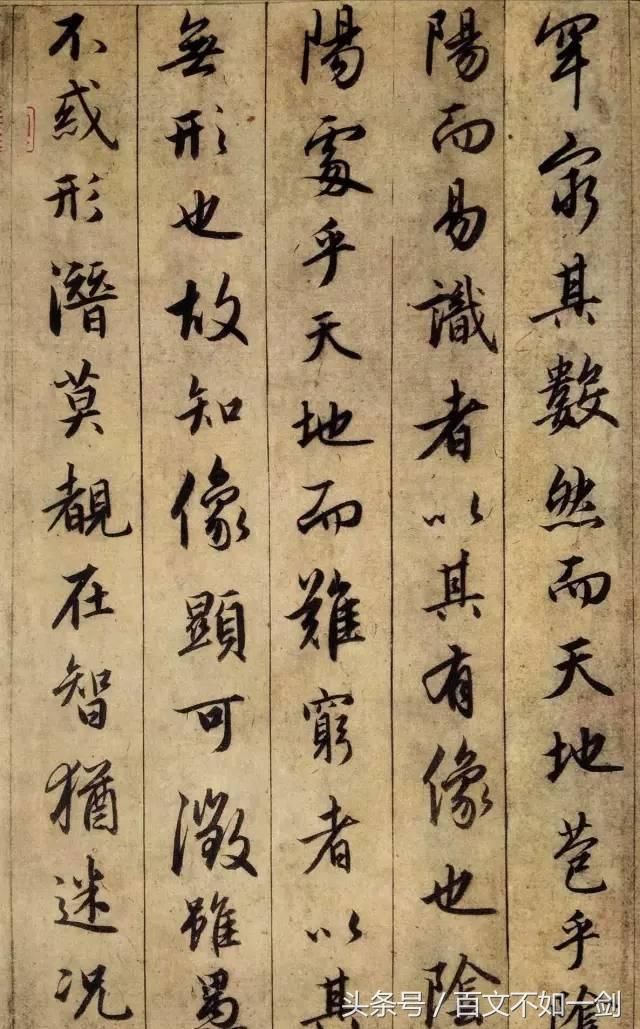 罕窮其數然而天地苞乎陰
陽而易識者以其有像也陰
陽處乎天地而難窮者以其
無形也故知像顯可徵雖愚
不惑形潛莫覩在智猶迷况
头条号/百文不如一剑